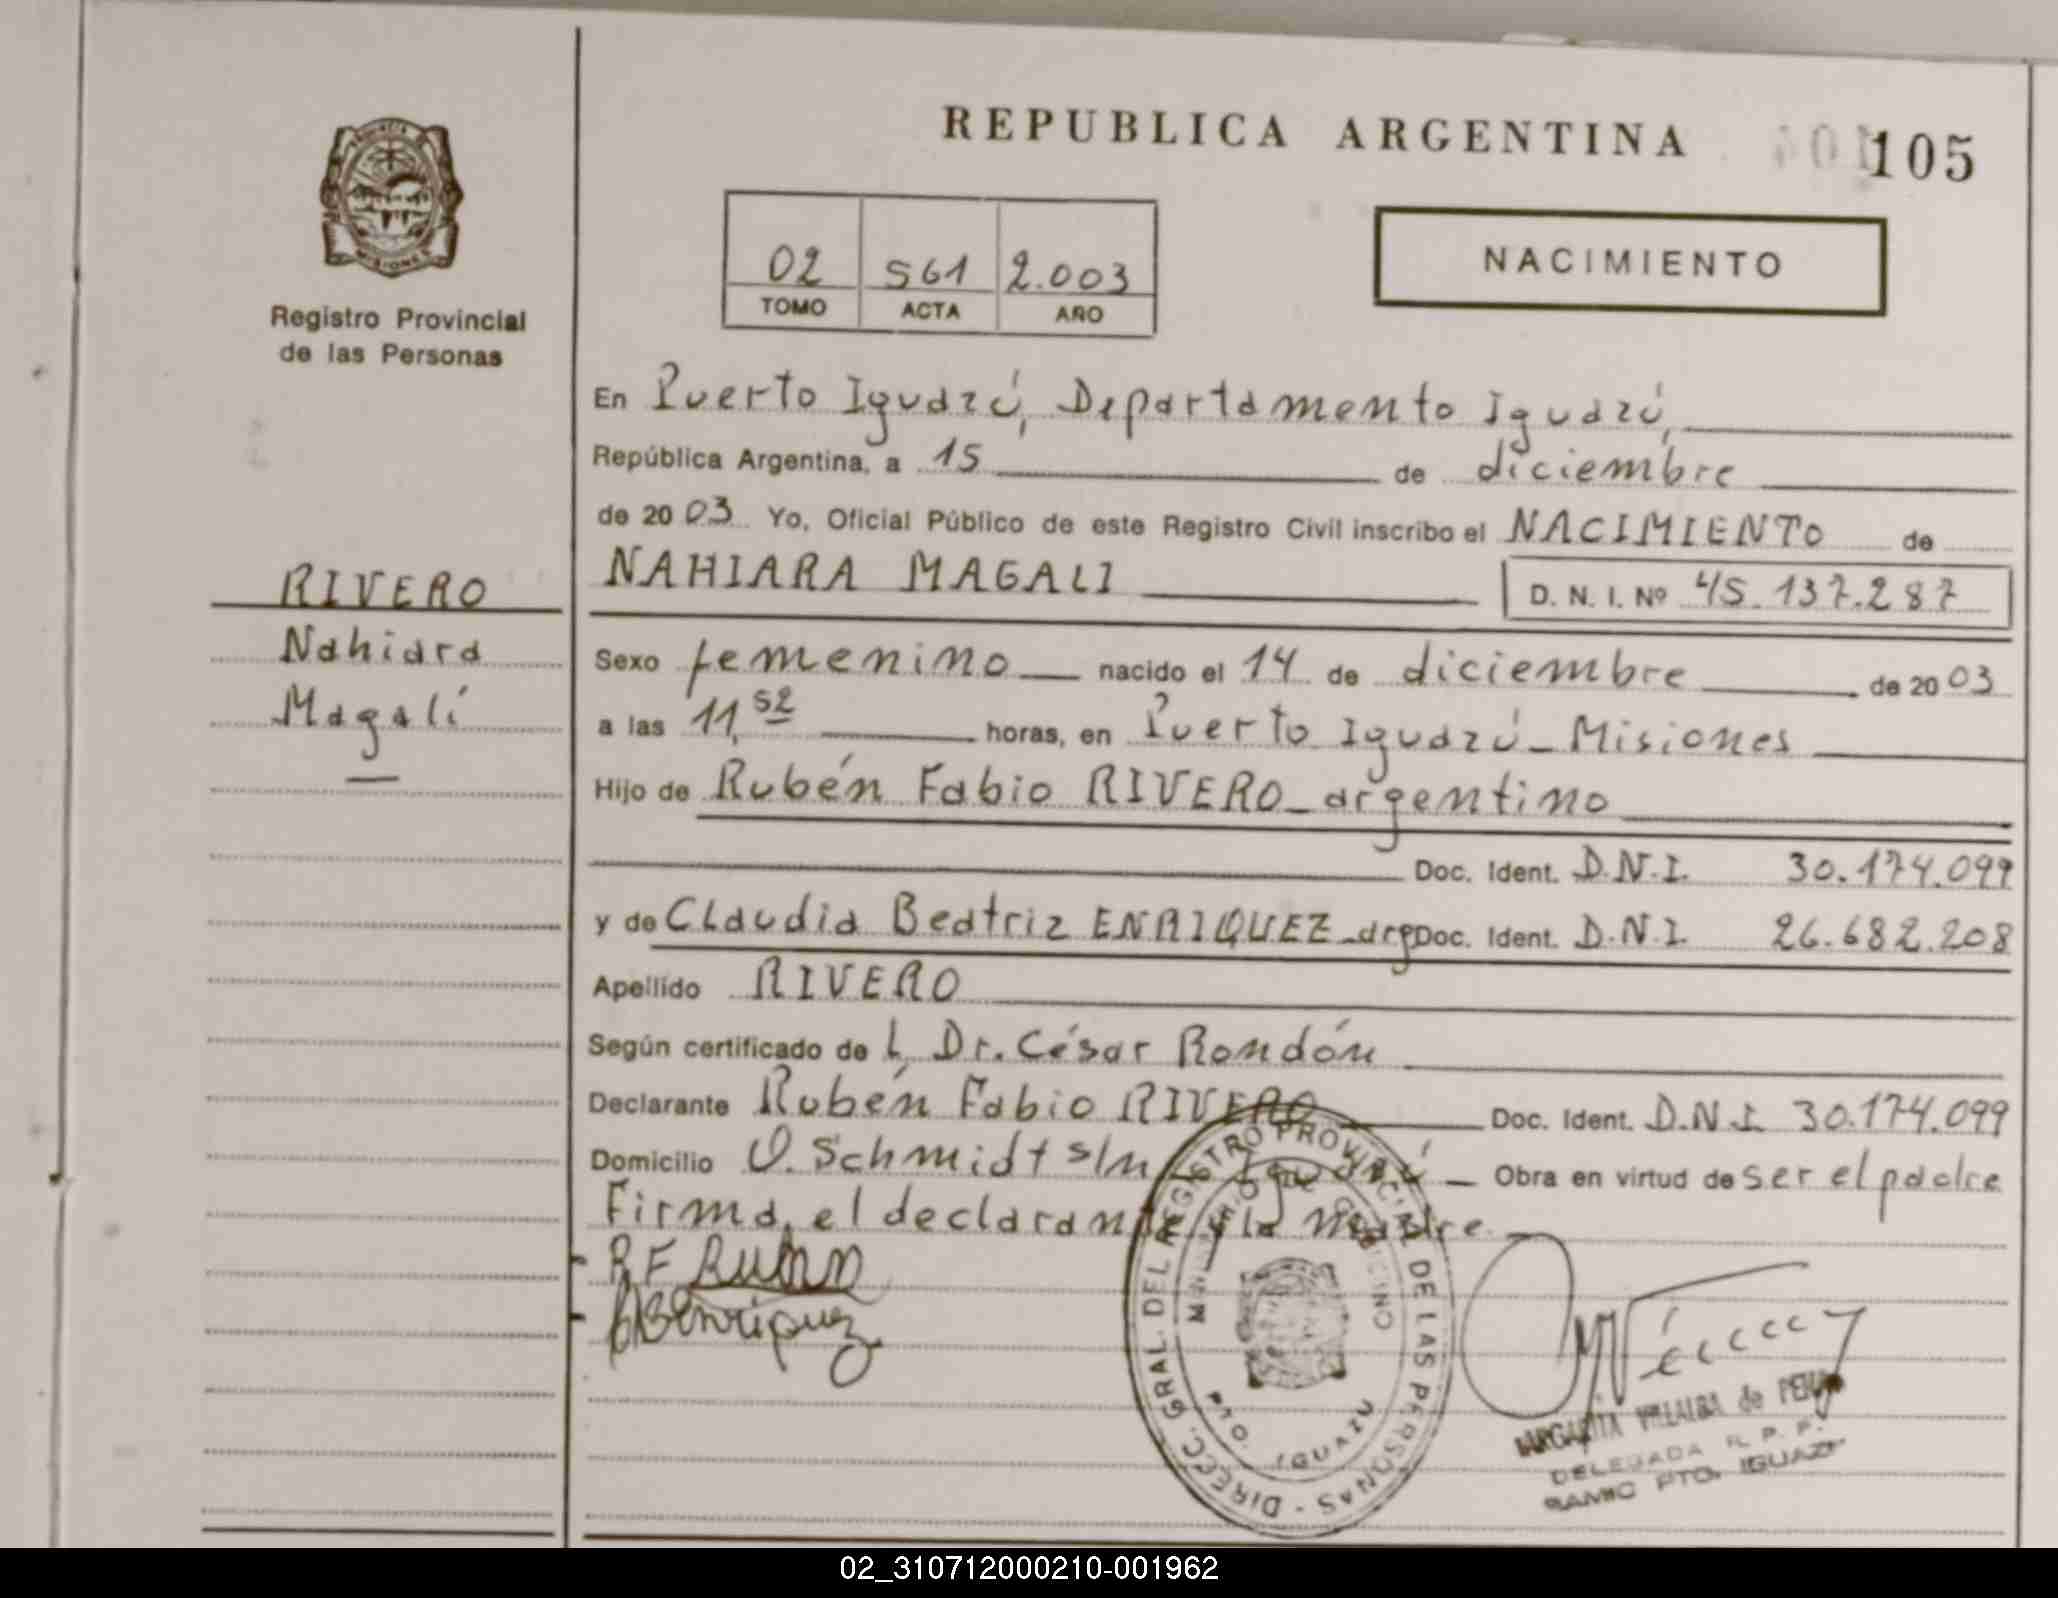 REPUBLICA ARGENTINA
105
PROVINCIA
MISIONES
Registro Provincial
de las Personas
02 561 2.003
TOMO ACTA AÑO
NACIMIENTO
En Puerto Iguazú, Departamento Iguazú,
República Argentina, a 15 de diciembre
de 2003 Yo, Oficial Público de este Registro Civil inscribo el NACIMIENTO de
NAHIARA MAGALI D. N. I. Nº 45.137.287
RIVERO
Nahiara
Magalí
Sexo femenino nacido el 14 de diciembre de 2003
a las 11,52 horas, en Puerto Iguazú - Misiones
Hijo de Rubén Fabio RIVERO - argentino
Doc. Ident. D.N.I. 30.174.099
y de Claudia Beatriz ENRIQUEZ - arg Doc. Ident. D.N.I. 26.682.208
Apellido RIVERO
Según certificado de l, Dr. César Rondón
Declarante Rubén Fabio RIVERO Doc. Ident. D.N.I. 30.174.099
Domicilio O. Schmidt s/n Iguazú Obra en virtud de ser el padre
Firma, el declarante y la madre
R F Ruben
CBEnriquez
DIRECC. GRAL. DEL REGISTRO PROVINCIAL DE LAS PERSONAS
MINISTERIO DE GOBIERNO
PTO. IGUAZU
MARGARITA VILLALBA de PENA
DELEGADA R. P. P.
SAMIC PTO. IGUAZU
02_310712000210-001962